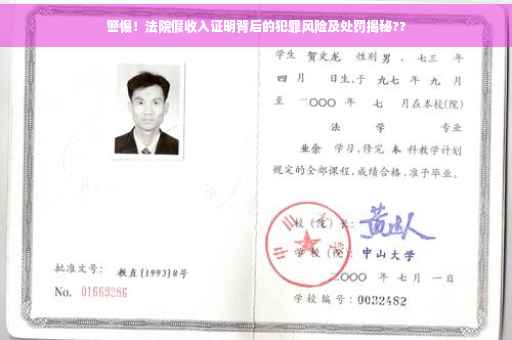 警惕！法院假收入证明背后的犯罪风险及处罚揭秘??
学生 贺文龙 性别 男 ，七三 年
四 月 日生，于 九七 年 九 月
至 二〇〇〇 年 七 月在本校(院)
法 学 专业
业余 学习，修完 本 科教学计划
规定的全部课程，成绩合格，准予毕业。
校 (院) 长：
学 校 (院)： 中山大学
二〇〇〇 年 七 月 一 日
批准文号： 教直[1993]8号
No. 01669286
学校编号：0032482